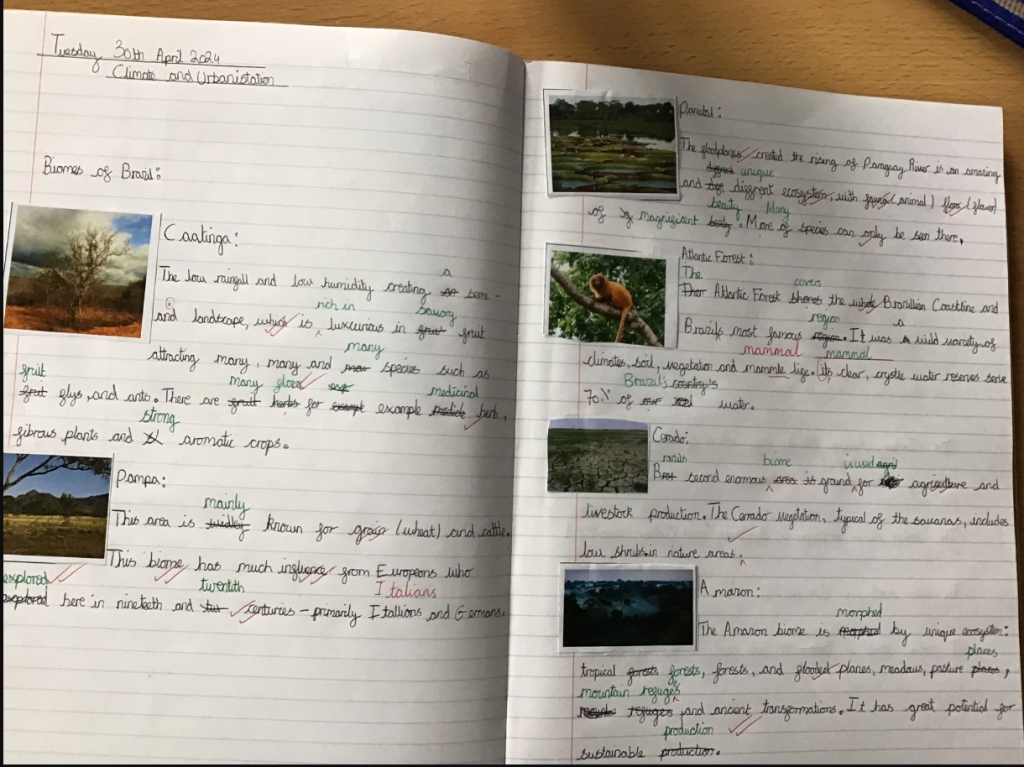 Tuesday 30th April 2024
Climate and Urbanistation
Biomes of Brazil:
Caatinga:
a
The low rainfall and low humidity creating semi-
rich in savory
and landscape, which is luxcurious in fruit
many
attracting many, many and species such as
fruit many flora medicinal
flys, and ants. There are herbs for example herb,
strong
fibrous plants and aromatic crops.
Pampa:
mainly
This area is widley known for grain (wheat) and cattle.
This biome has much influence from Europeans who
explored twentith Italians
explored here in nineteeth and centuries - primarily Itallions and Germans.
Panatal:
The floodplanes created the rising of Paraguay River is an amazing
unique
and diffrent ecosystem, with fauna (animal) flora (flower)
beauty Many
of magnificient beaty. More of species can only be seen there.
Atlantic Forest:
The covers
Atlantic Forest shares the whole Brazillian Coastline and
region a
Brazils most famous region. It was a wild variety of
mammal mammal
climates, soil, vegetation and mammle life. Its clear, crystle water reserves serve
Brazil's country's
70% of water.
Cerado:
razils biome is used
second enormous area is ground for agriculture and
livestock production. The Cerrado vegetation, typical of the savanas, includes
low shrubs in nature areas.
Amazon:
morphed
The Amazon biome is morphed by unique ecosystem:
places
tropical forests forests, forests, and flooded planes, meadows, pasture places,
mountain refuges
refuges and ancient transformations. It has great potential for
production
sustainable production.